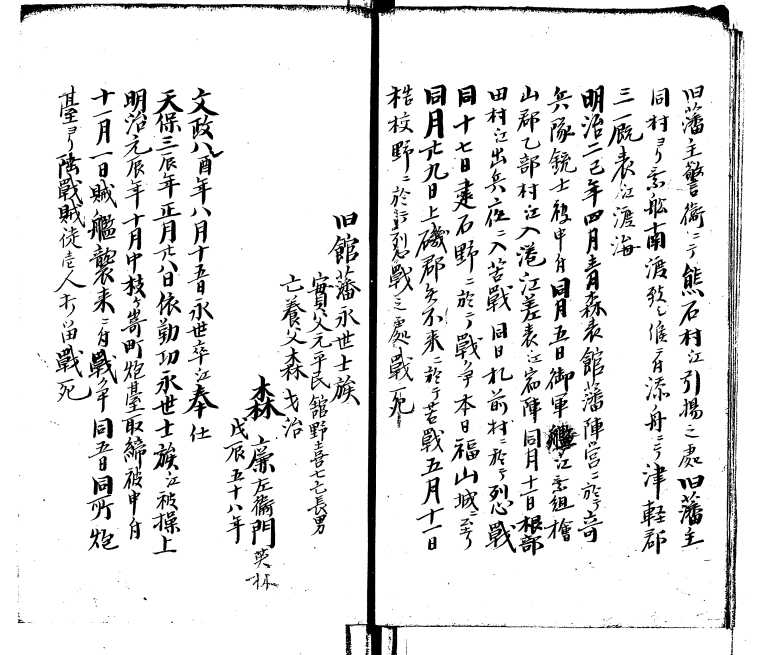 旧藩主警衛ニテ熊石村江引揚之處旧藩主
同村ヨリ乗舩南渡致シ候ニ付添舟ニテ津軽郡
三厩表江渡海
明治二己年四月青森表館藩陣営ニ於テ奇
兵隊銃士被申付同月五日御軍艦江乗組檜
山郡乙部村江入港江差表江宿陣同月十一日根部
田村江出兵夜ニ入苦戦同日札前村ニ於テ烈戦
同十七日建石野ニ於テ戦争本日福山城ニ至ル
同月廿九日上磯郡矢不来ニ於テ苦戦五月十一日
桔梗野ニ於テ烈戦之處戦死
旧館藩永世士族
實父元平民館野喜七亡長男
亡養父森 治
森 左衛門英
戊辰五十八年
文政八酉年八月十五日永世卒江奉仕
天保三辰年正月廿八日依勤功永世士族江被操上
明治元辰年十月中枝ケ嵜町炮臺取締被申付
十一月一日賊艦襲来ニ付戦争同五日同所炮
臺ヨリ陸戦賊徒壱人打留戦死